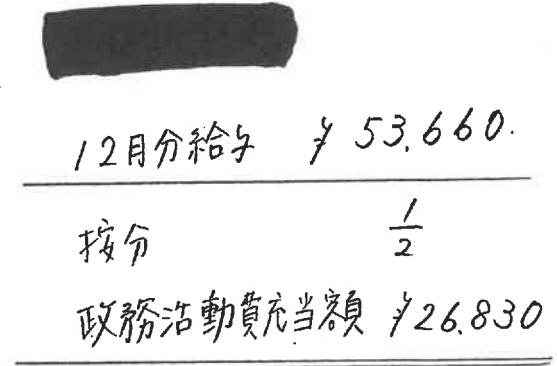 12月分給与 ¥53,660.
按分 1/2
政務活動費充当額 ¥26,830